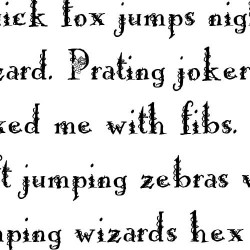 ick fox jumps nig
ard. Prating joker
ked me with fibs.
t jumping zebras v
ping wizards hex